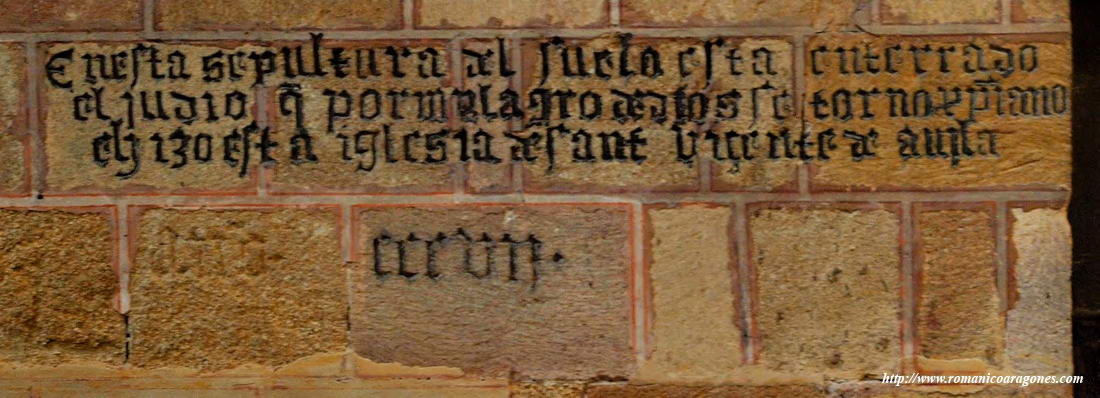 Enesta sepultura del suelo esta enterrado
el judio q̃ por miẏlagro de dios se torno xp̃iano
ehizo esta iglesia de sant viçente de auila
cccvii.
http://www.romanicoaragones.com